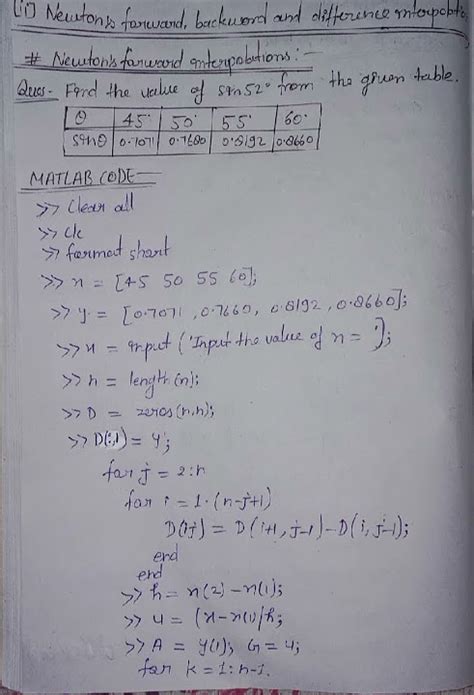 (ii) Newton's forward, backword and difference interpolat
# Newton's forward interpolations :-
Ques- Find the value of sin 52° from the given table.
θ 45° 50° 55° 60°
sinθ 0.7071 0.7660 0.8192 0.8660
MATLAB CODE-
>> clear all
>> clc
>> format short
>> x = [45 50 55 60];
>> y = [0.7071, 0.7660, 0.8192, 0.8660];
>> x = input ('Input the value of x = ');
>> n = length(x);
>> D = zeros(n,n);
>> D(:,1) = y';
for j = 2:n
for i = 1:(n-j+1)
D(ij) = D(i+1, j-1)-D(i, j-1);
end
end
>> h = x(2)-x(1);
>> u = (x-x(1)/h;
>> A = y(1); G = u;
for k = 1:n-1.